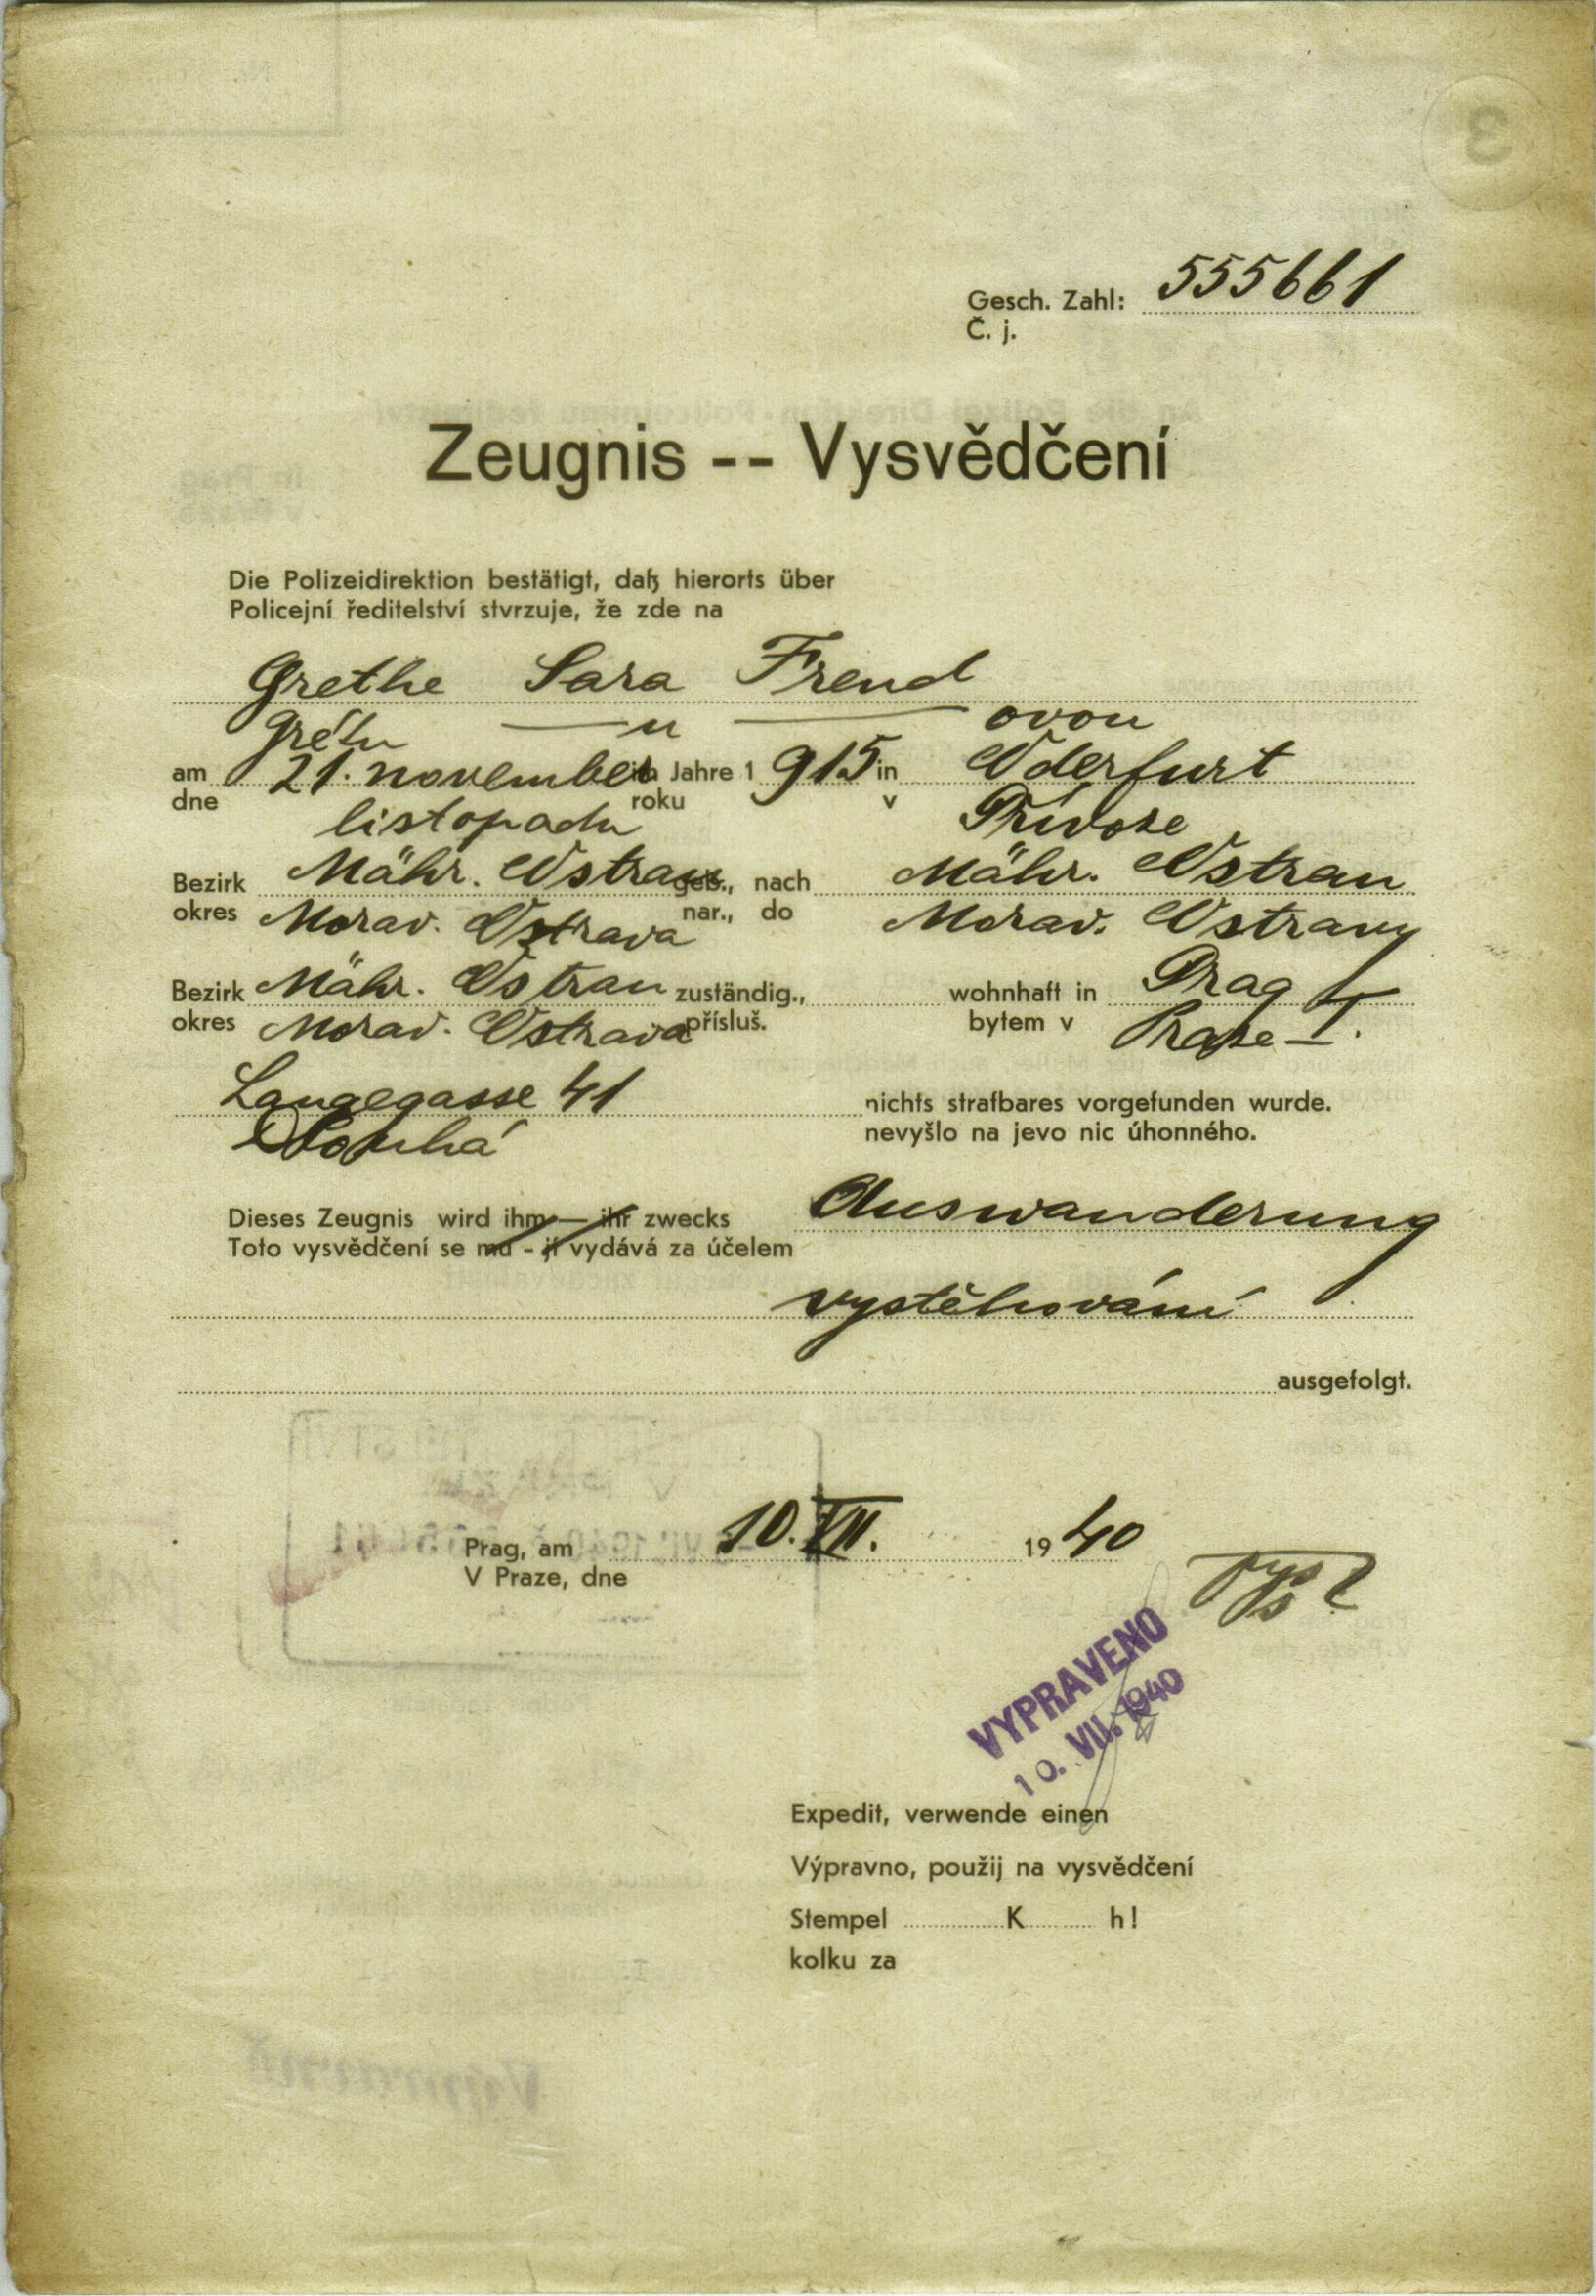 Gesch. Zahl: 555661
Č. j.
Zeugnis -- Vysvědčení
Die Polizeidirektion bestätigt, daß hierorts über
Policejní ředitelství stvrzuje, že zde na
Grethe Sara Freud
Grétu — u — ovou
am 21. november im Jahre 1 915 in Oderfurt
dne listopadu roku v Přívoze
Bezirk Mähr. Ostrau geb., nach Mähr. Ostrau
okres Morav. Ostrava nar., do Morav. Ostravy
Bezirk Mähr. Ostrau zuständig., wohnhaft in Prag I.
okres Morav. Ostrava přísluš. bytem v Praze
Langegasse 41 nichts strafbares vorgefunden wurde.
Dlouhá nevyšlo na jevo nic úhonného.
Dieses Zeugnis wird ihm — ihr zwecks Auswanderung
Toto vysvědčení se mu - jí vydává za účelem
vystěhování
ausgefolgt.
Prag, am 10. VII. 1940
V Praze, dne
VYPRAVENO
10. VII. 1940
Expedit, verwende einen
Výpravno, použij na vysvědčení
Stempel K h!
kolku za